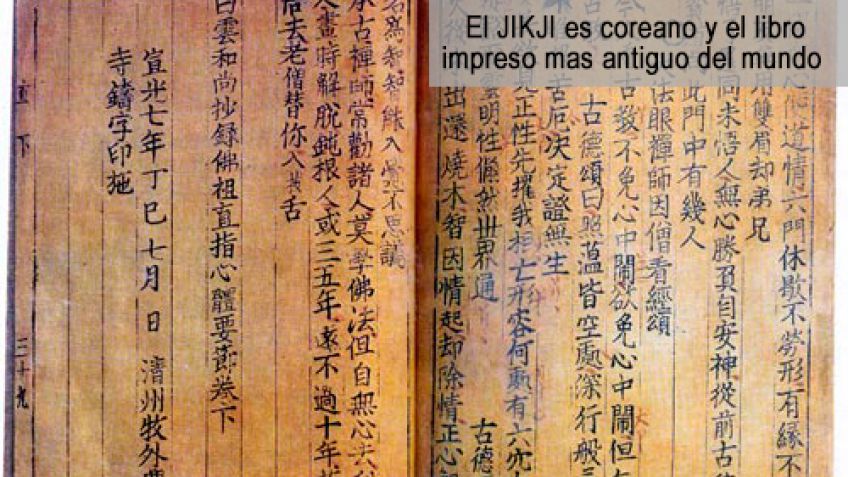 El JIKJI es coreano y el libro
impreso mas antiguo del mundo
道情六門休歇不勞形有縁不
用雙眉却弟兄
同未悟人無心勝負自安神從前古
此門中有幾人
法眼禪師因僧看經頌
古教不免心中鬧欲免心中鬧但
古德頌曰照蘊皆空處深行般
苦厄決定證無生
見正性先擢我相亡形容何處有六
靈明性儼然世界通 古德
出還燒木智因情起却除情正心
名為智智緣入 不思議
承古禪師常勸諸人莫學佛法但自無心去利
人盡時解脫鈍根人或三五年遠不過十年若
悟去老僧替你入拔舌
白雲和尚抄錄佛祖直指心體要節卷下
宣光七年丁巳七月 日 清州牧外
寺鑄字印施
直下 三十九